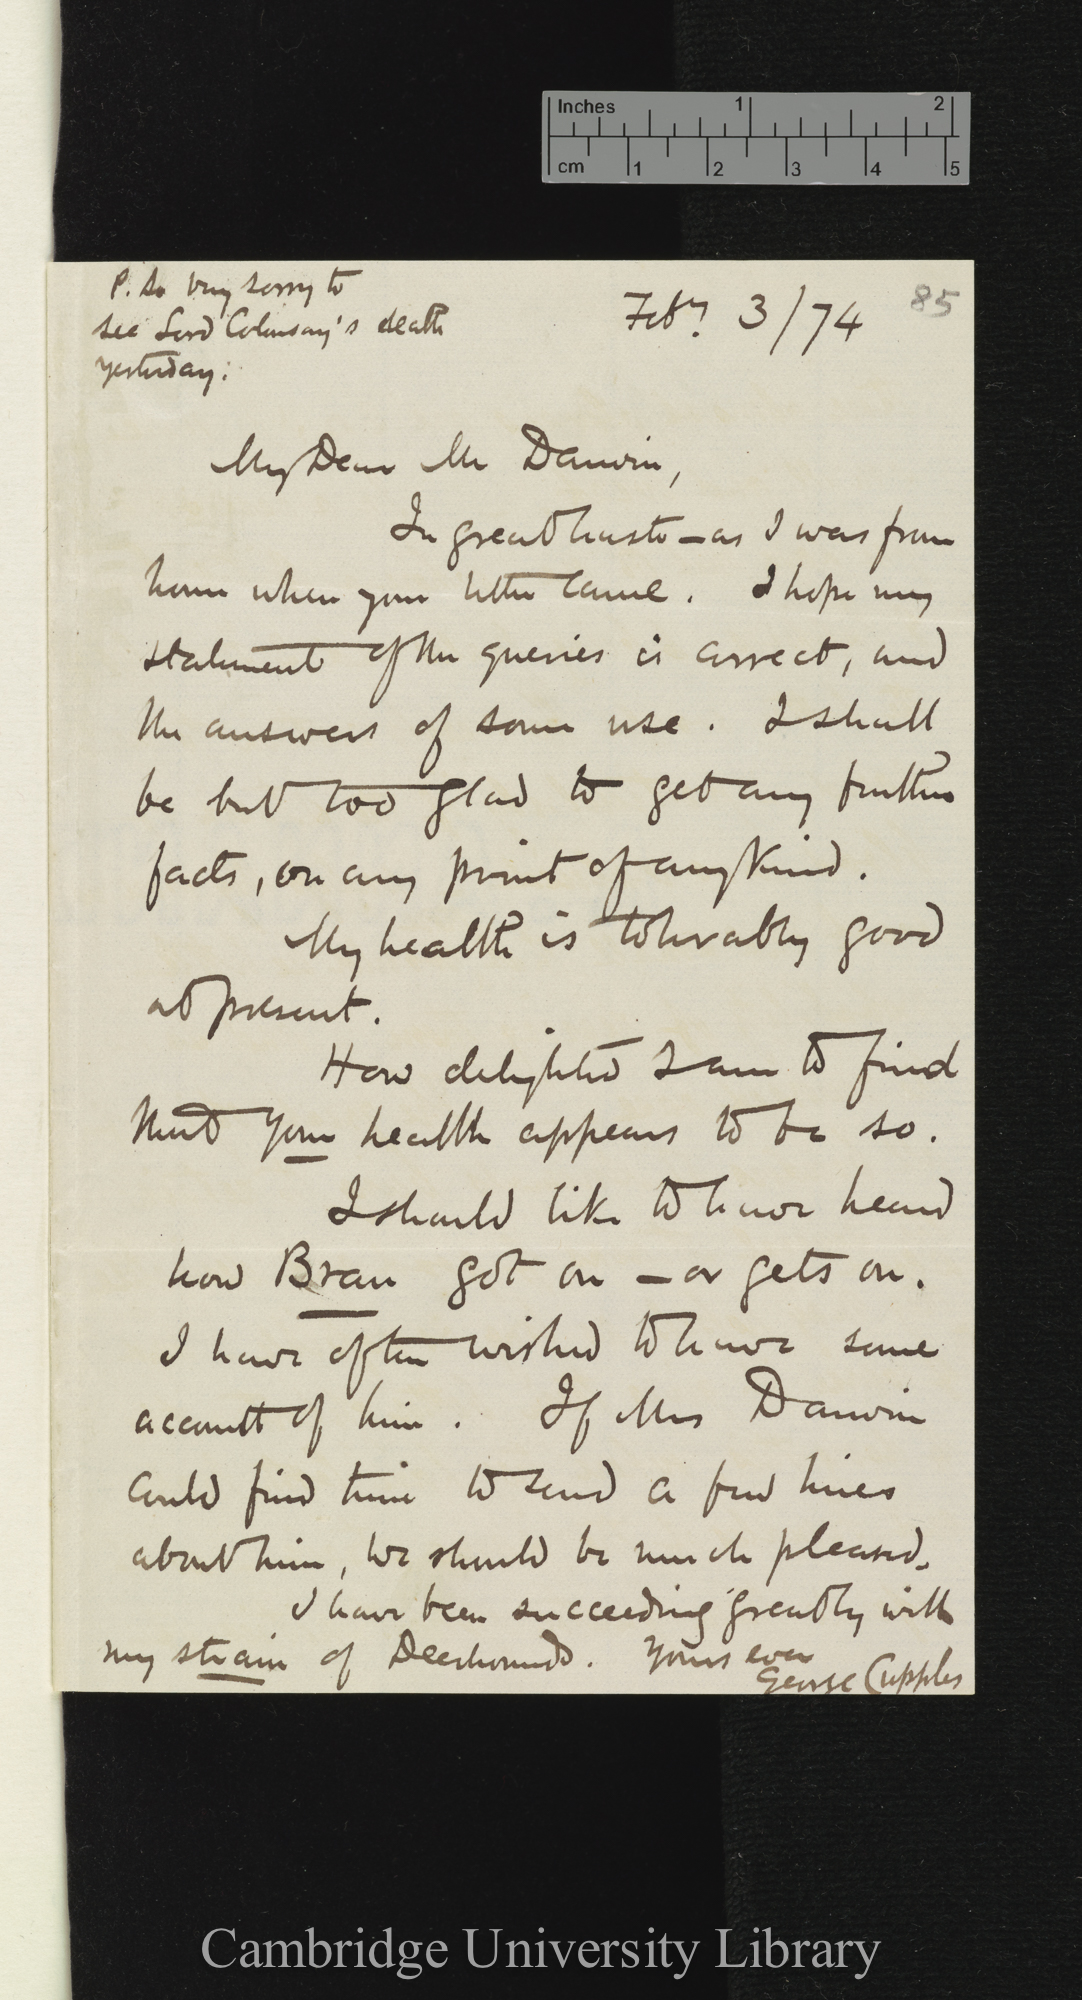 Inches 1 2
cm 1 2 3 4 5
P. So very sorry to
see Lord Colonsay's death
yesterday.
Feby. 3/74
85
My Dear Mr Darwin,
In great haste—as I was from
home when your letter came. I hope my
statement of the queries is correct, and
the answers of some use. I shall
be but too glad to get any further
facts, on any point of any kind.
My health is tolerably good
at present.
How delighted I am to find
that your health appears to be so.
I should like to have heard
how Bran got on — or gets on.
I have often wished to have some
account of him. If Mrs Darwin
could find time to send a few lines
about him, we should be much pleased.
I have been succeeding greatly with
my strain of Deerhounds. Yours ever
George Cupples
Cambridge University Library